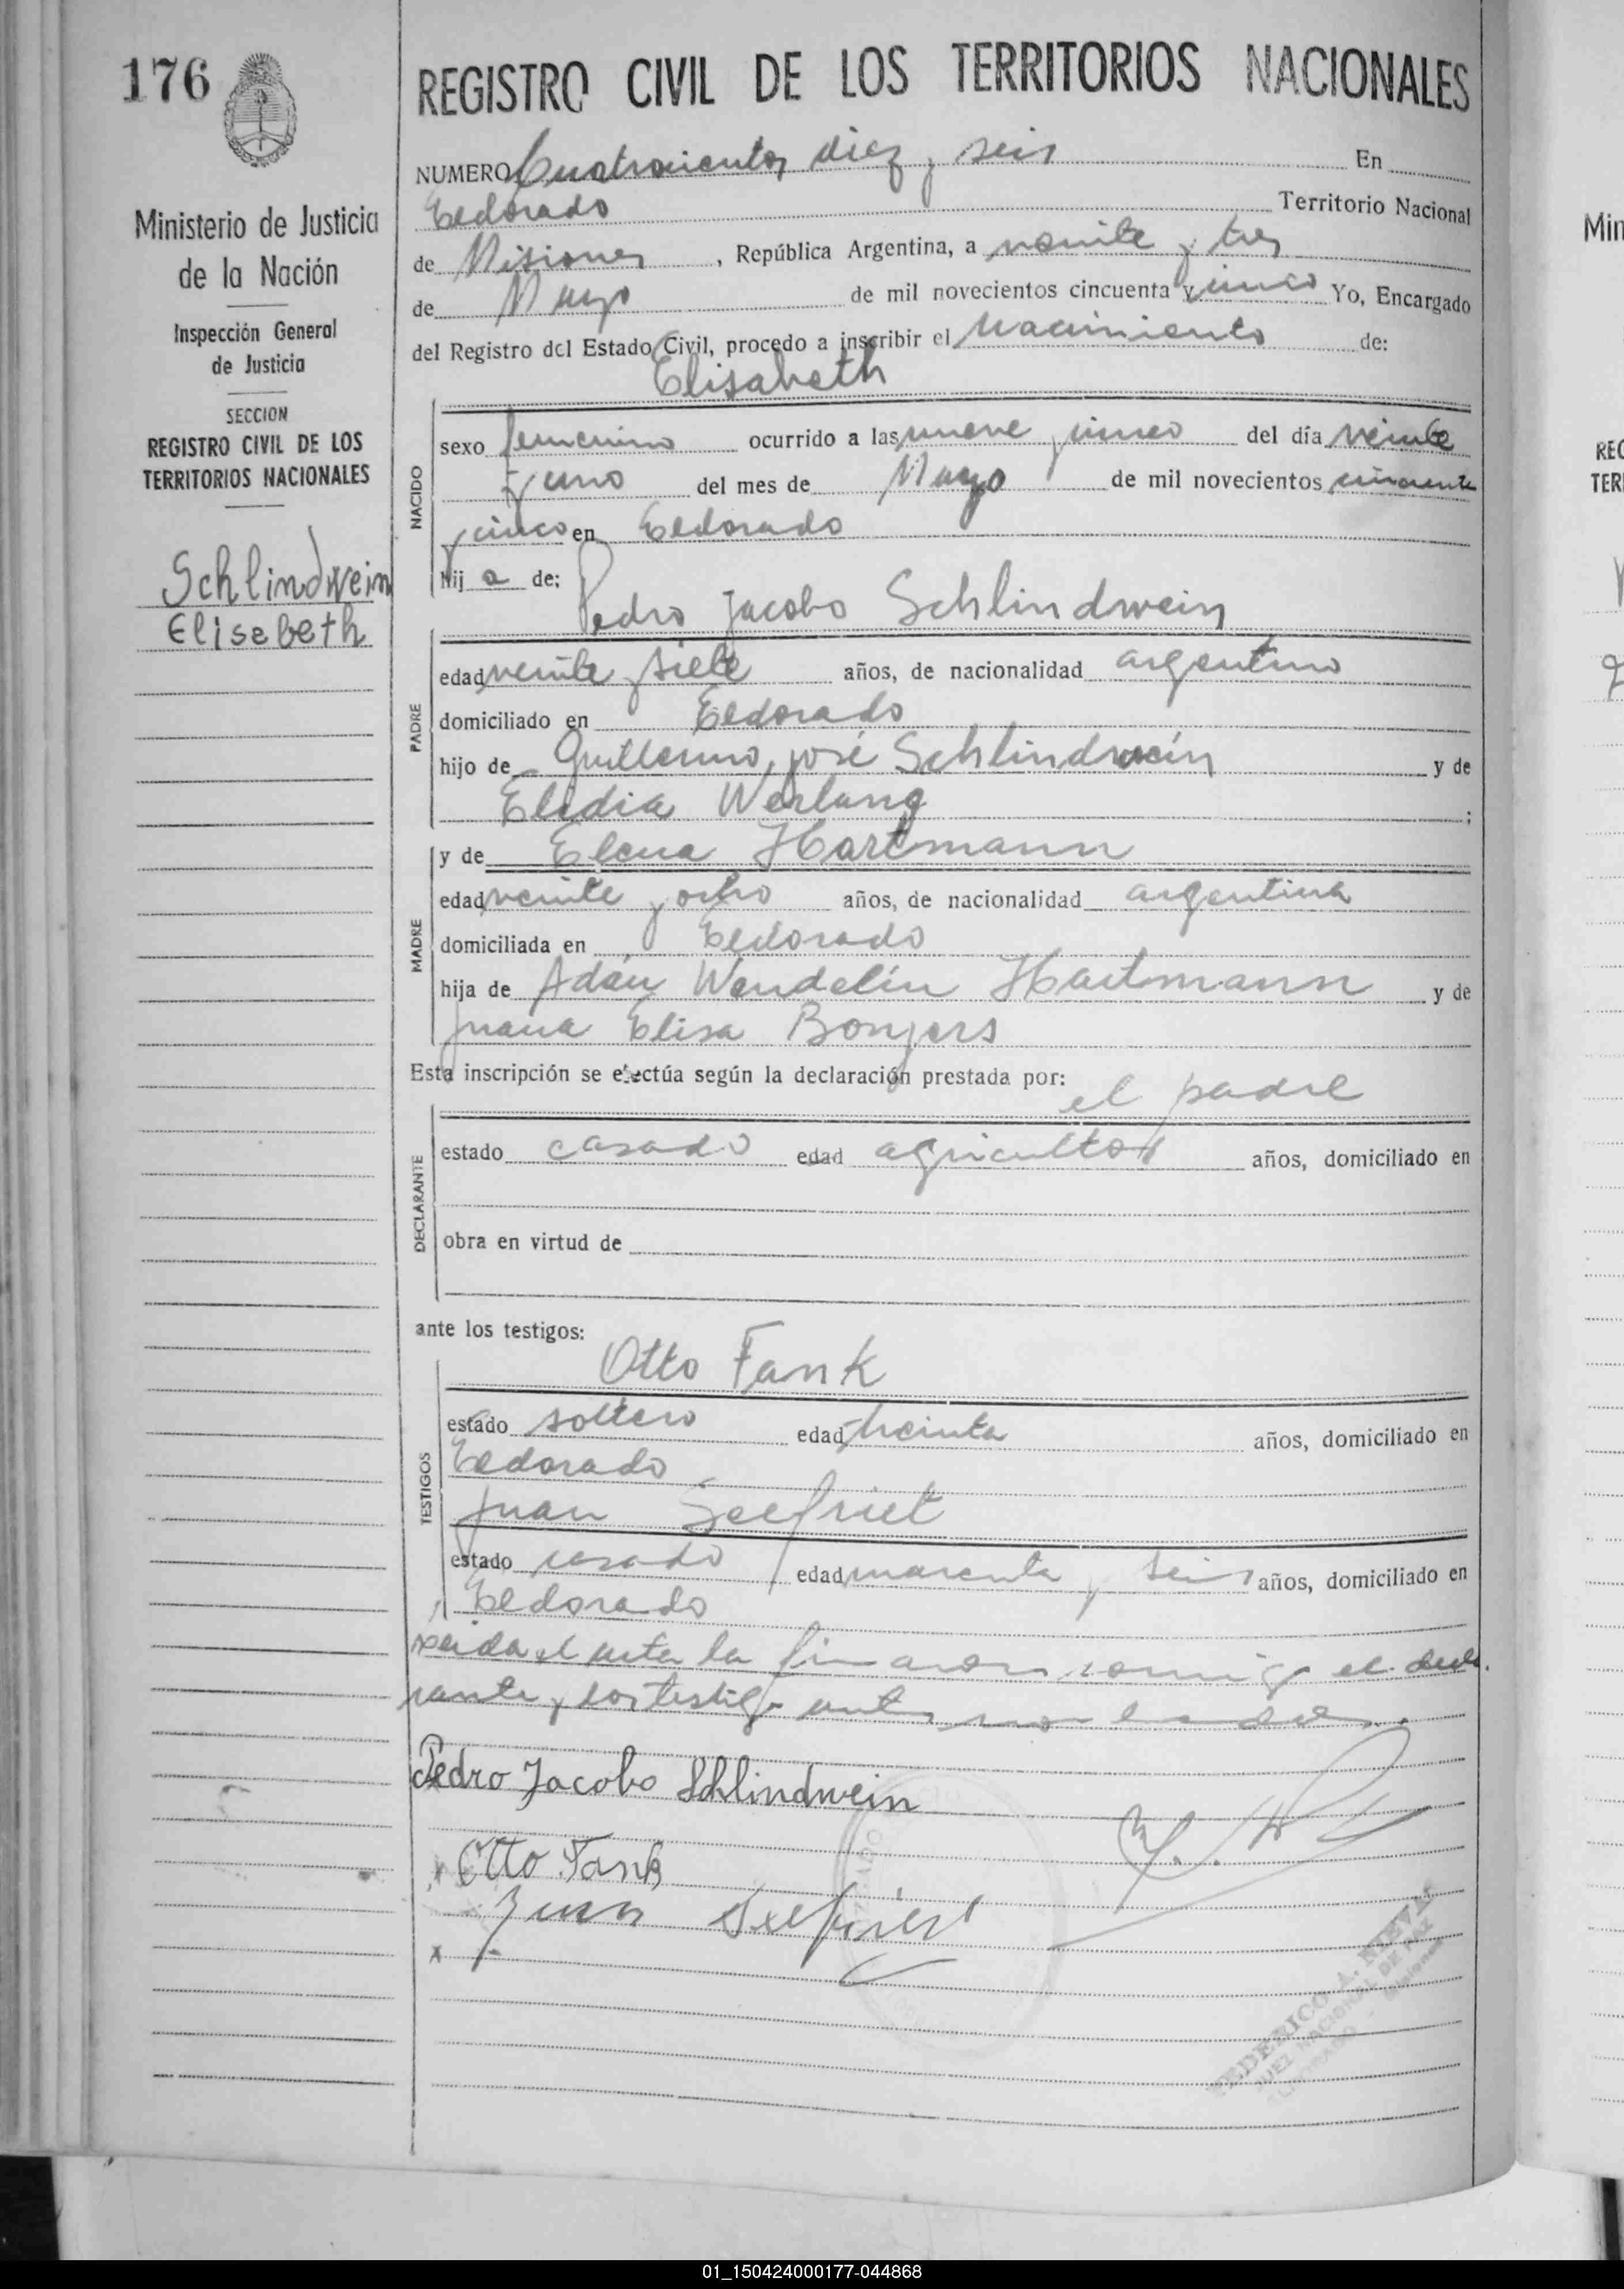 176
Ministerio de Justicia
de la Nación
Inspección General
de Justicia
SECCION
REGISTRO CIVIL DE LOS
TERRITORIOS NACIONALES
Schlindwein
Elisabeth
REGISTRO CIVIL DE LOS TERRITORIOS NACIONALES
NUMERO Cuatrocientos diez y seis En
Eldorado Territorio Nacional
de Misiones, República Argentina, a veinte y tres
de Mayo de mil novecientos cincuenta y cinco Yo, Encargado
del Registro del Estado Civil, procedo a inscribir el Nacimiento de:
Elisabeth
NACIDO
sexo femenino ocurrido a las nueve y cinco del día veinte
y uno del mes de Mayo de mil novecientos cincuenta
y cinco en Eldorado
hij a de:
Pedro Jacobo Schlindwein
PADRE
edad veinte y siete años, de nacionalidad argentino
domiciliado en Eldorado
hijo de Guillermo José Schlindwein y de
Elidia Werlang ;
y de Elena Hartmann
MADRE
edad veinte y ocho años, de nacionalidad argentina
domiciliada en Eldorado
hija de Adán Wendelin Hartmann y de
Juana Elisa Bonjers
Esta inscripción se efectúa según la declaración prestada por:
el padre
DECLARANTE
estado casado edad agricultor años, domiciliado en
obra en virtud de
ante los testigos:
Otto Fank
TESTIGOS
estado soltero edad treinta años, domiciliado en
Eldorado
Juan Seefriet
estado casado edad cuarenta y seis años, domiciliado en
Eldorado
Leida el acta la firmaron conmigo el decla
rante y los testigos
Pedro Jacobo Schlindwein
Otto Fank
x Juan
FEDERICO A.
JUEZ NACIONAL DE PAZ
01_150424000177-044868